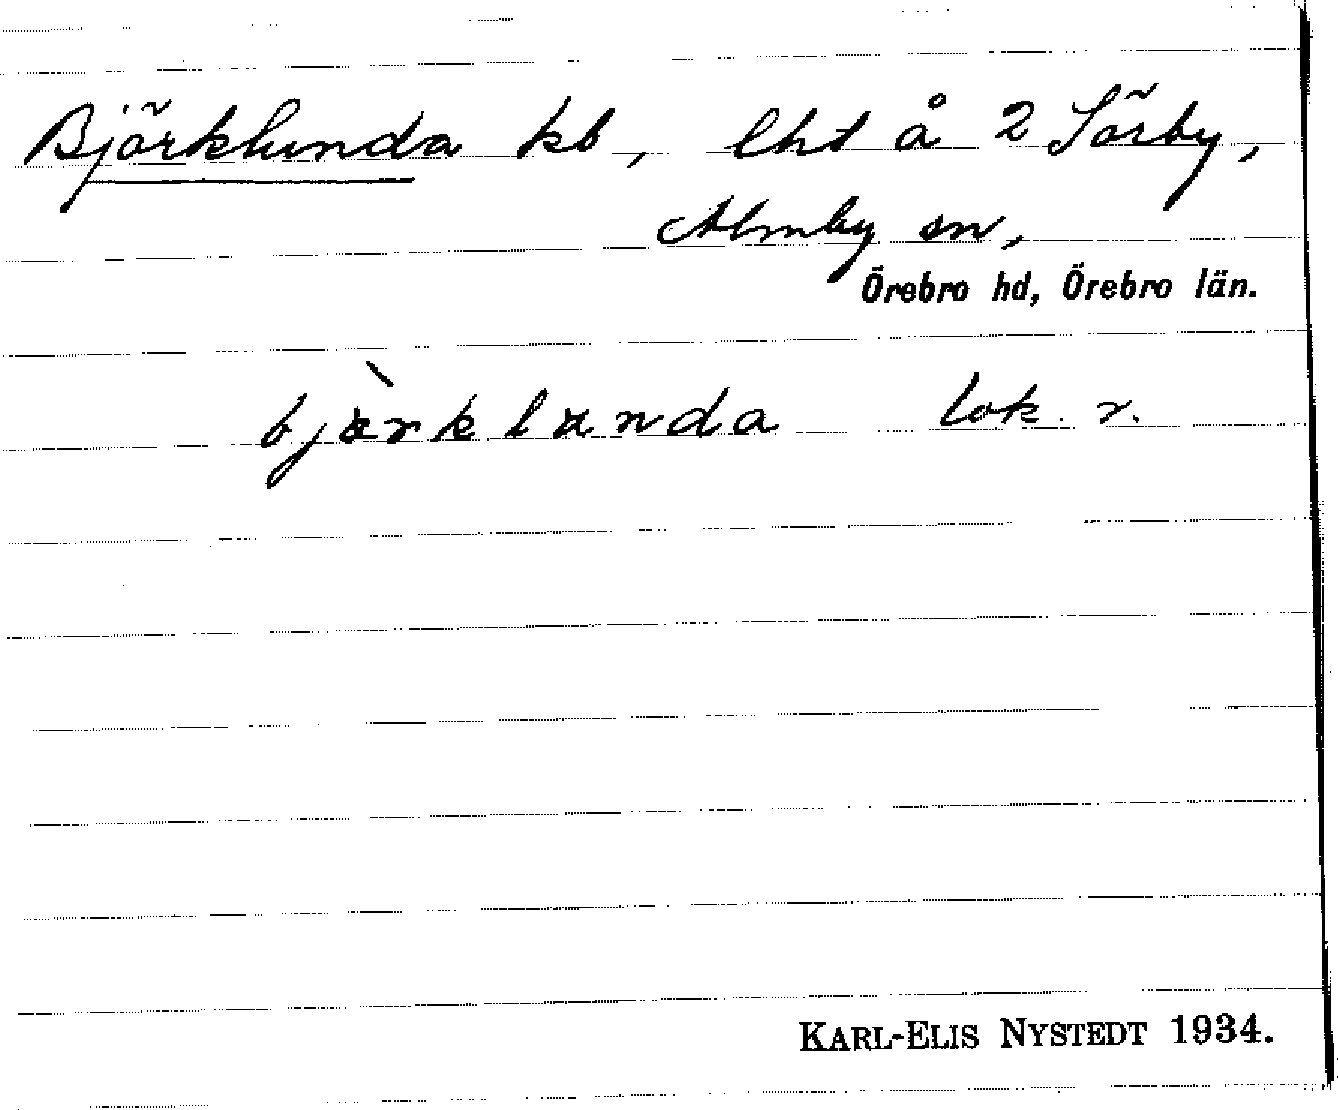 Björklunda kb, lht å 2 Sörby,
Almby sn,
Örebro hd, Örebro län.
bjàrklanda lok. r.
KARL-ELIS NYSTEDT 1934.